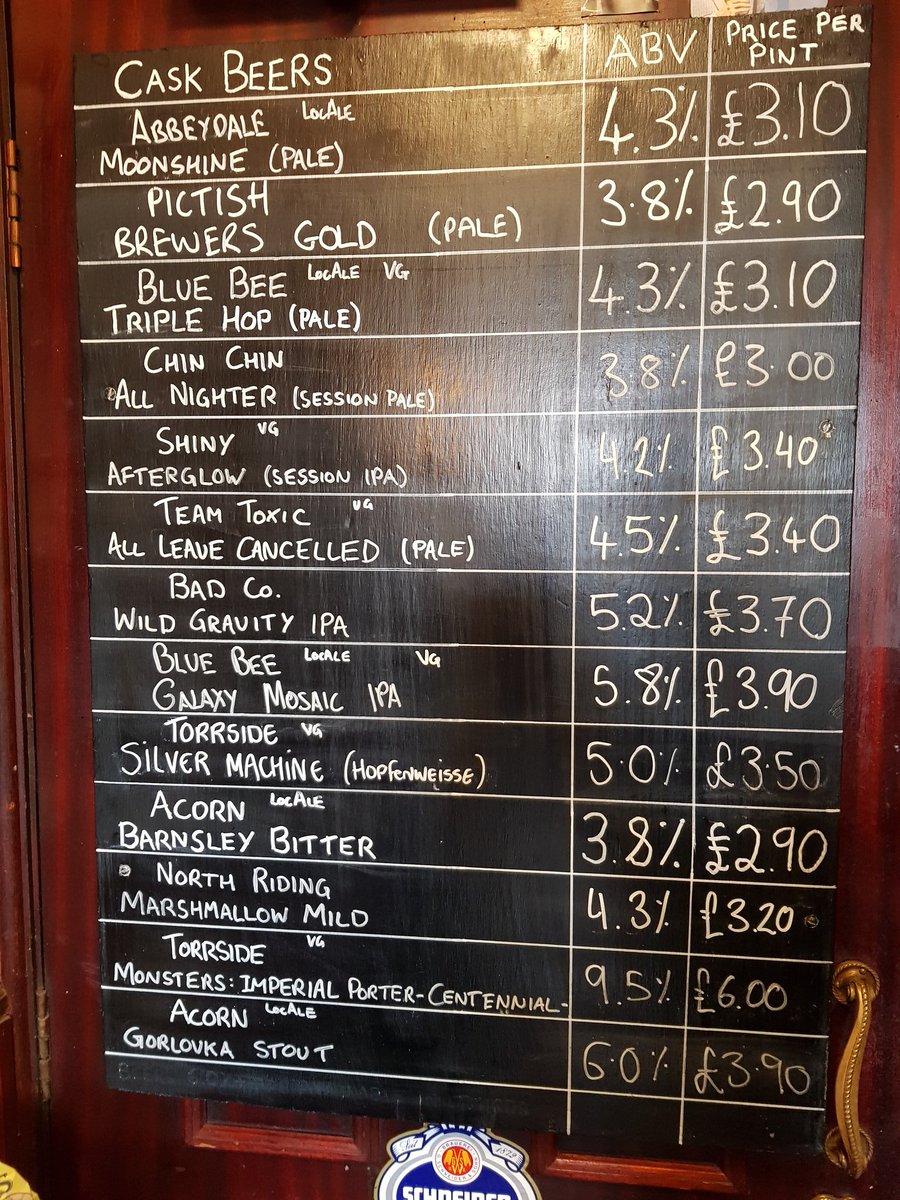 CASK BEERS ABV PRICE PER PINT
ABBEYDALE LocAle
MOONSHINE (PALE) 4.3% £3.10
PICTISH
BREWERS GOLD (PALE) 3.8% £2.90
BLUE BEE LocAle VG
TRIPLE HOP (PALE) 4.3% £3.10
CHIN CHIN
ALL NIGHTER (SESSION PALE) 3.8% £3.00
SHINY VG
AFTERGLOW (SESSION IPA) 4.2% £3.40
TEAM TOXIC VG
ALL LEAVE CANCELLED (PALE) 4.5% £3.40
BAD CO.
WILD GRAVITY IPA 5.2% £3.70
BLUE BEE LocAle VG
GALAXY MOSAIC IPA 5.8% £3.90
TORRSIDE VG
SILVER MACHINE (HOPFENWEISSE) 5.0% £3.50
ACORN LocAle
BARNSLEY BITTER 3.8% £2.90
NORTH RIDING
MARSHMALLOW MILD 4.3% £3.20
TORRSIDE VG
MONSTERS: IMPERIAL PORTER-CENTENNIAL- 9.5% £6.00
ACORN LocAle
GORLOVKA STOUT 6.0% £3.90
BRAUEREI
Seit 1872
SCHNEIDER